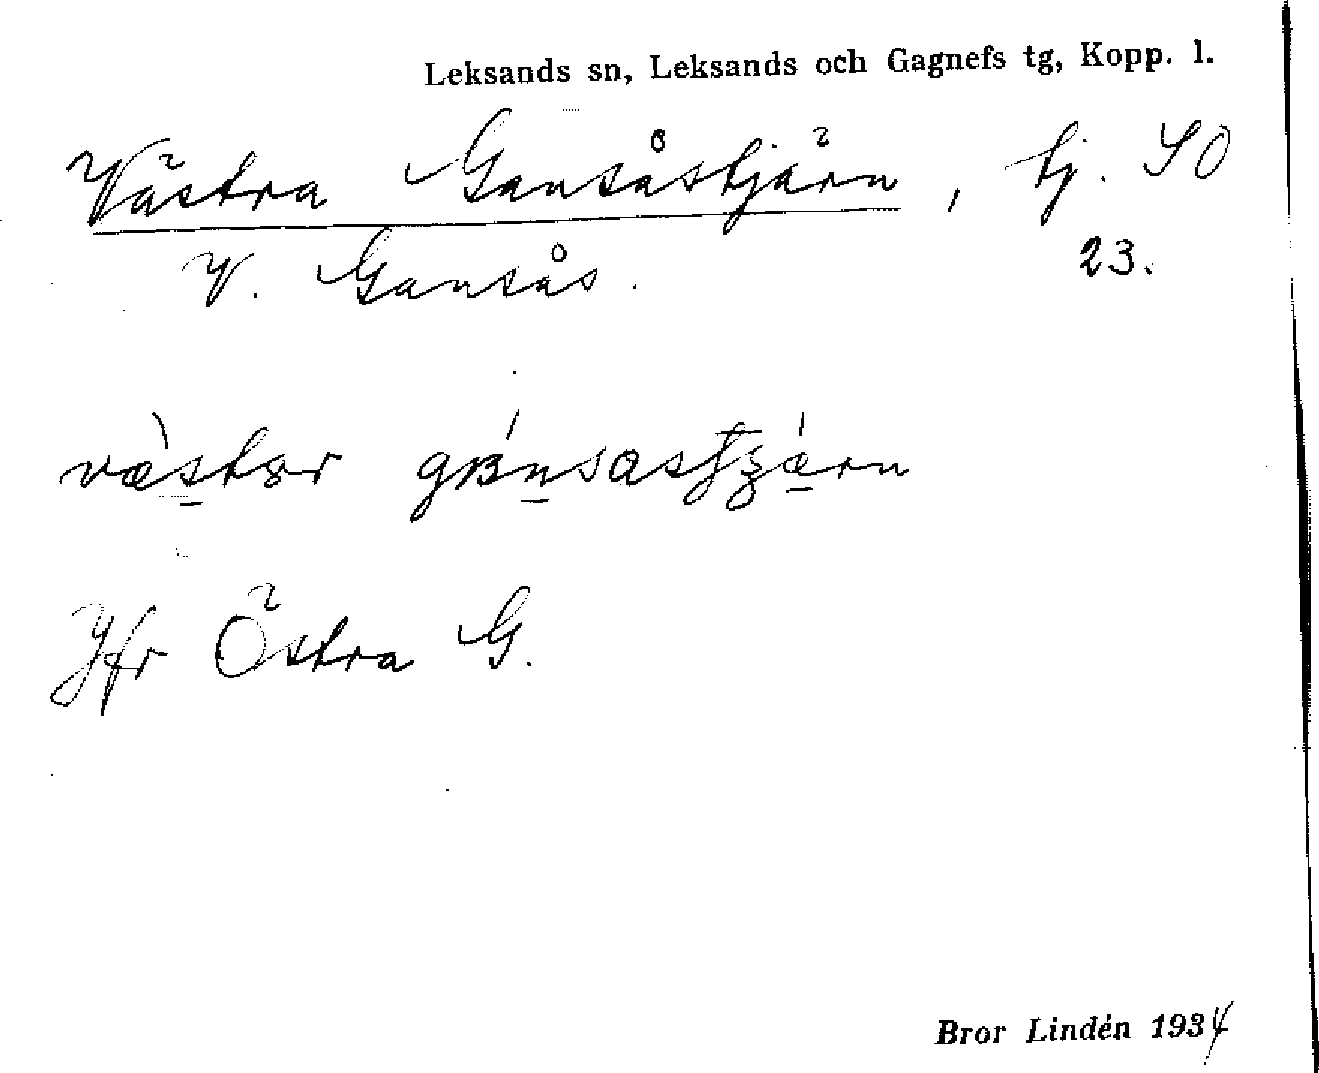 Leksands sn, Leksands och Gagnefs tg, Kopp. l.
Västra Gansåstjärn, tj. SO
V. Gansås. 23.
Jfr Östra G.
Bror Lindén 1934